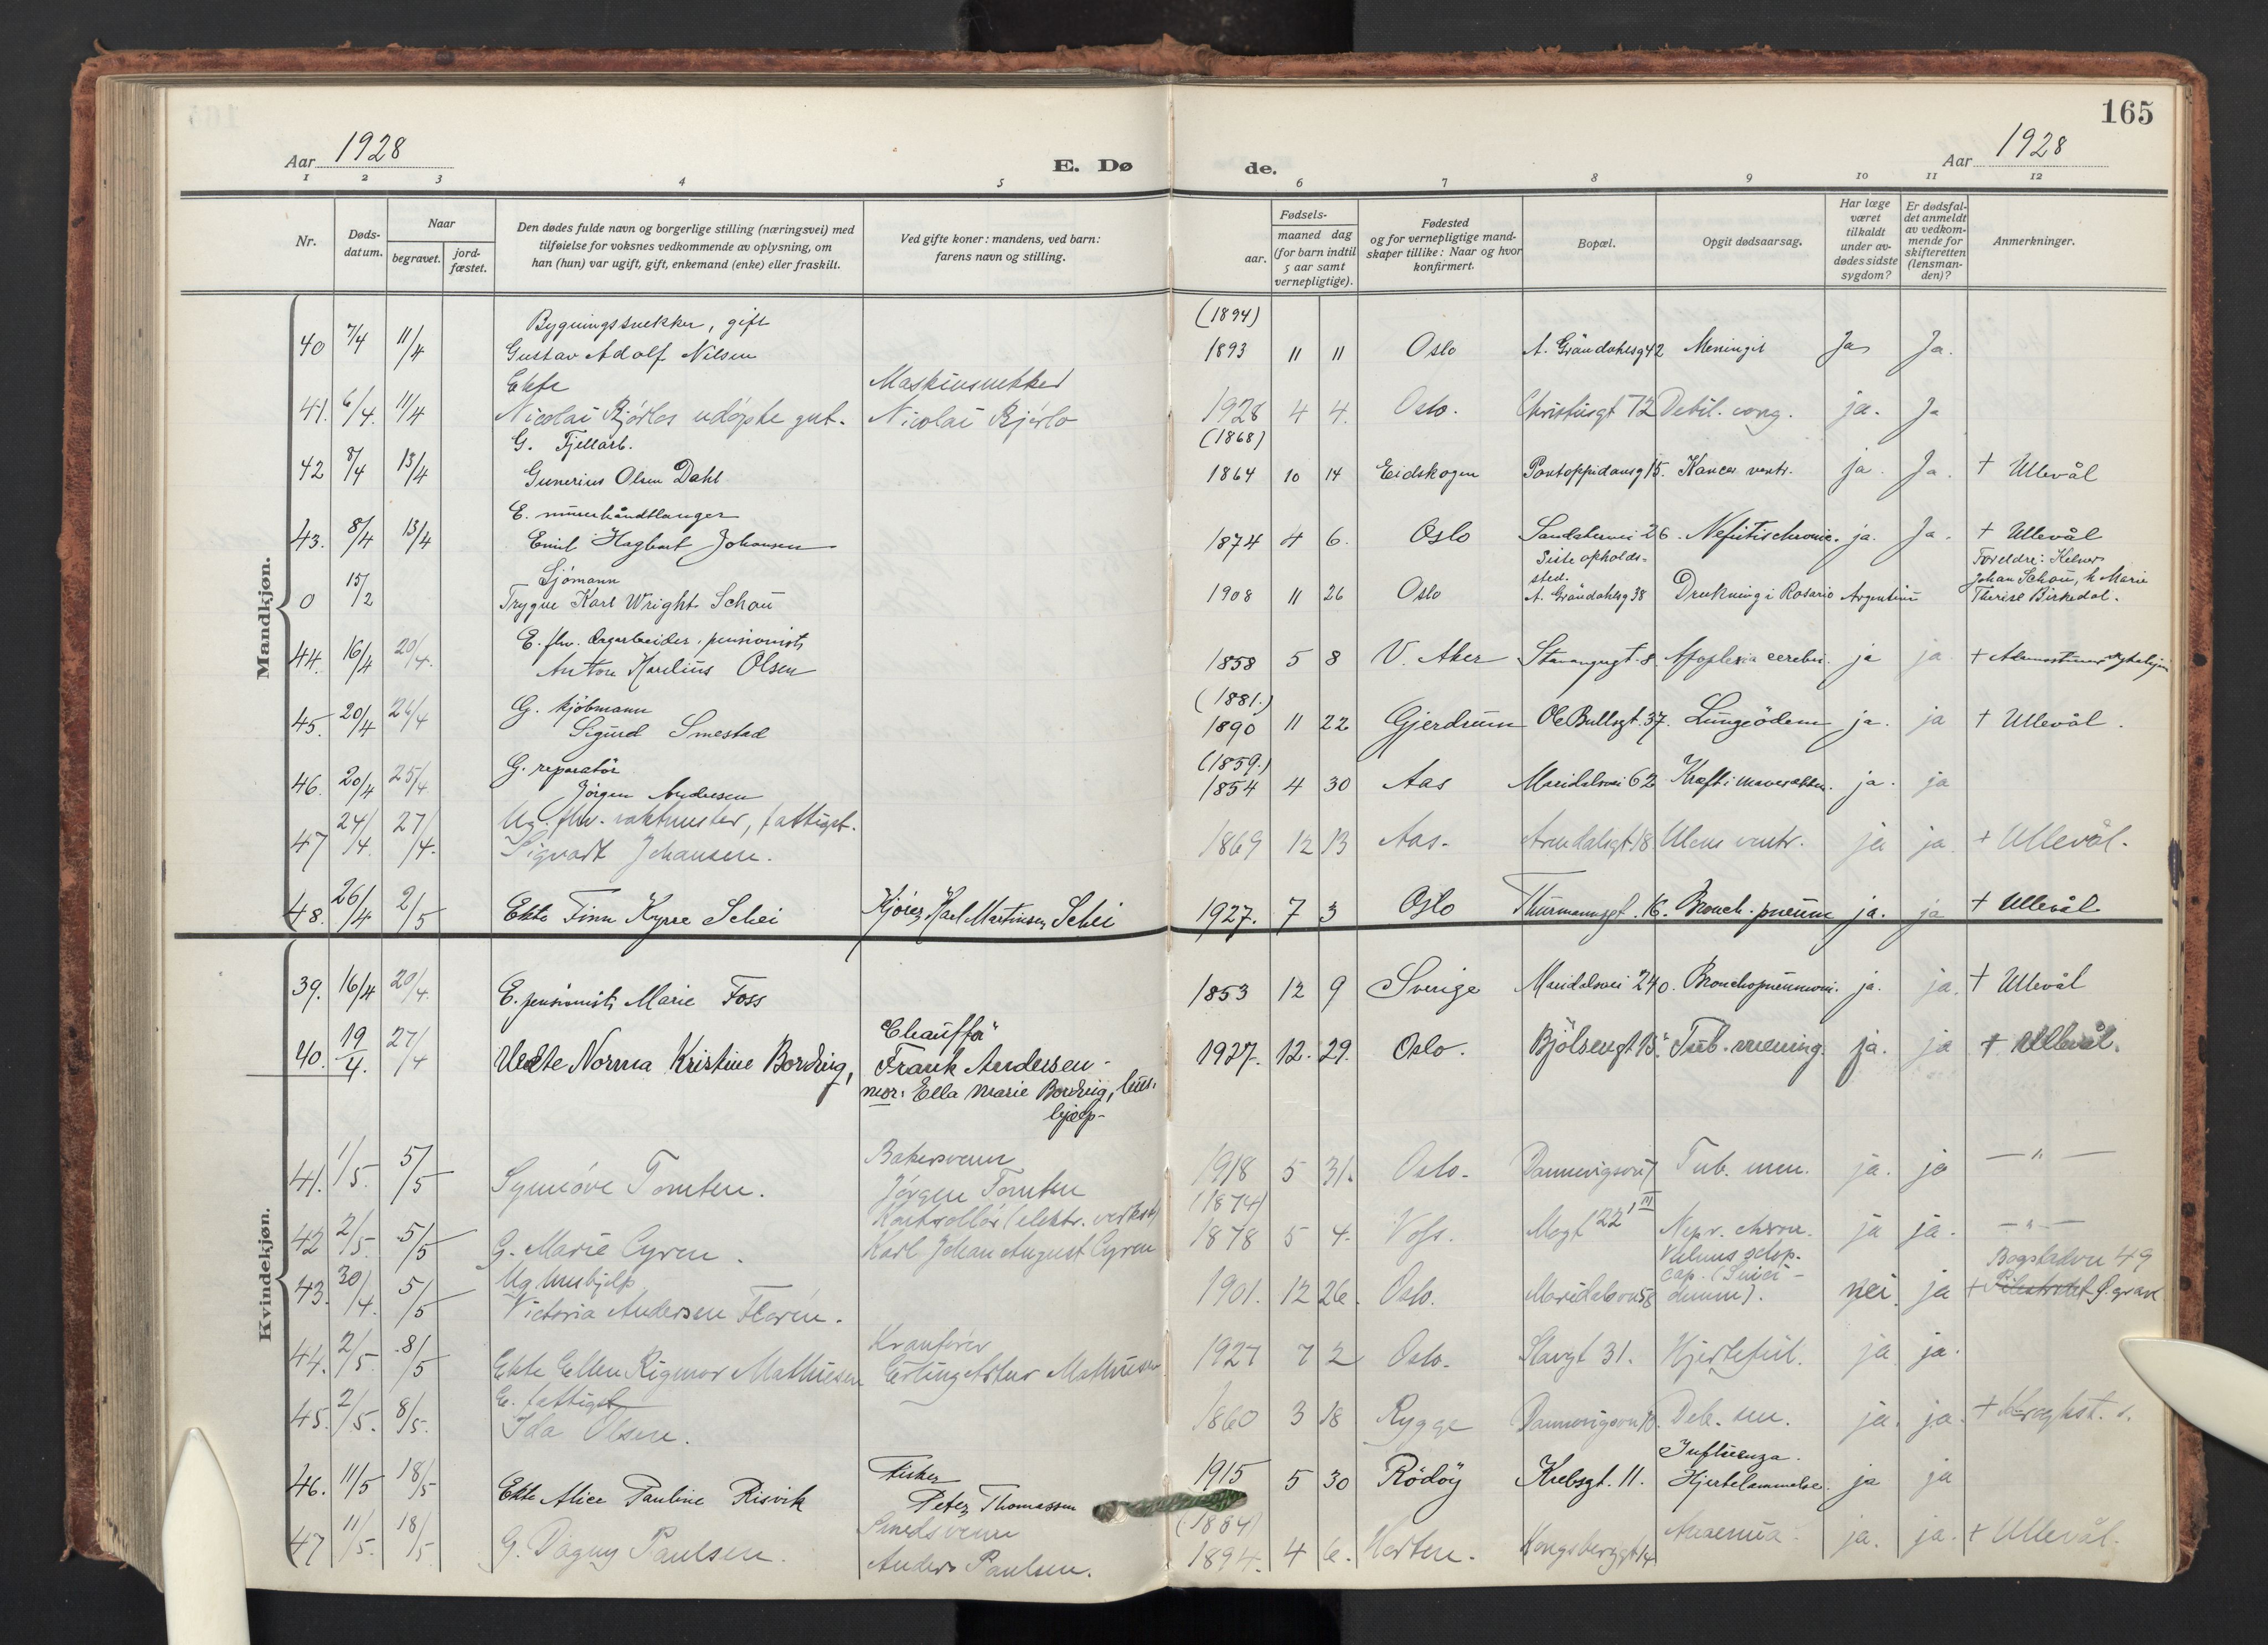 165
Aar 1928
E. Dø
de.
Aar 1928
1 2 3 4 5 6 7 8 9 10 11 12
Nr.
Døds-
datum.
Naar
begravet.
jord-
fæstet.
Den dødes fulde navn og borgerlige stilling (næringsvei) med
tilføielse for voksnes vedkommende av oplysning, om
han (hun) var ugift, gift, enkemand (enke) eller fraskilt.
Ved gifte koner: mandens, ved barn:
farens navn og stilling.
Fødsels-
aar.
maaned dag
(for barn indtil
5 aar samt
vernepligtige).
Fødested
og for vernepligtige mand-
skaper tillike: Naar og hvor
konfirmert.
Bopæl.
Opgit dødsaarsag.
Har læge
været
tilkaldt
under av-
dødes sidste
sygdom?
Er dødsfal-
det anmeldt
av vedkom-
mende for
skifteretten
(lensman-
den)?
Anmerkninger.
Mandkjøn.
Bygningssnekker, gift (1894)
40 7/4 11/4 Gustav Adolf Nilsen 1893 11 11 Oslo A. Gröndahlsg 42 Meningit Ja Ja.
Ekte Maskinsnekker
41. 6/4. 11/4 Nicolai Bjørlos udøpte gut. Nicolai Bjørlo 1928 4 4. Oslo. Christiesgt 72 Debil. cong. ja. Ja
G. Fjellarb. (1868)
42 8/4 13/4 Gunerius Olsen Dahl 1864 10 14 Eidskogen Pontoppidansg 15. Kancer ventr. ja. Ja. † Ullevål
E. murerhåndtlanger
43. 8/4 13/4 Emil Hagbart Johansen 1874 4 6. Oslo Sandakervei 26. Nefritis chronic. ja. Ja. † Ullevål
Sjömann Siste opholds-
sted. Foreldre: Kelner
Johan Schou, h. Marie
0 15/2 Trygve Karl Wright Schou 1908 11 26 Oslo A. Gröndahlsg 38 Drukning i Rosario Argentina Therese Birkedal.
E. fhv. pensionist
44. 16/4 20/4. Anton Karelius Olsen 1858 5 8 V. Aker Stavangergt. 8 Apoplexia cerebri. ja ja †
G. kjöbmann (1881.)
45. 20/4 26/4 Sigurd Smestad 1890 11 22 Gjerdrum Ole Bullsgt. 37. Lungeödem ja. ja † Ullevål.
G. reparatör (1859.)
46. 20/4 25/4 Jörgen Andersen 1854 4 30 Aas Maridalsvei 62 Kreft i mavesekken. ja. ja
Ug. fhv. vaktmester, fattigpt.
47 24/4. 27/4. Sigvart Johansen. 1869 12 13 Aas. Arendalsgt 18 Ulcus ventr. ja ja + Ullevål.
48. 26/4 2/5 Ekte Finn Kyrre Schei Kjører Karl Martinsen Schei 1927. 7 3 Oslo Thurmannsgt. 16. Bronch. pneum ja. ja † Ullevål
Kvindekjøn.
39. 16/4 20/4. E. pensionist Marie Foss 1853 12 9 Sverige Maridalsvei 240. Bronchopneumoni. ja. ja. † Ullevål
Chauffør
40. 19/4. 27/4 Uekte Norma Kristine Bordvig, Frank Andersen - 1927. 12. 29. Oslo. Bjölsengt 15. Tub. mening. ja. ja † Ullevål.
mor: Ella Marie Bordvig, hus-
hjelp-
Bakersvenn
41. 1/5. 5/5 Synnöve Tomten. Jørgen Tomten 1918 5 31. Oslo. Dannevigsvn 7 Tub. men. ja. ja — " —
Kontrollör (elektr. verket) (1874)
42 2/5. 5/5 G. Marie Cyren. Karl Johan August Cyren 1878 5 4. Voss. Mogt 22 III Nepr. chron. ja ja. — " —
Ug. hushjelp Vulnus sclop. Bogstadvn 49
43. 30/4. 5/5 Victoria Andersen Florén. 1901. 12 26. Oslo. Maridalsvn 58 cap. (Suici-
dium). nei. ja + Pilestredet f. grav
Kranfører
44. 2/5. 8/5 Ekte Ellen Rigmor Mathiesen Erling Artur Mathiesen 1927 7 2 Oslo. Slavgt 31. Hjertefeil. ja ja.
E. fattigst.
45. 2/5. 8/5. Ida Olsen. 1860 3 18 Rygge Dannevigsvn 10. Deb. sen. ja. ja. + Kroghst. s.
Fisker Influenza.
46. 11/5 18/5 Ekte Alice Pauline Risvik Peter Thomassen 1915 5 30 Rödöy Krebsgt. 11. Hjertelammelse. ja ja
Smedsvenn (1884)
47 11/5. 18/5 G. Dagny Paulsen. Anders Paulsen. 1894. 4 6. Horten. Kongsberggt 14 Anaemia. ja. ja. + Ullevål.